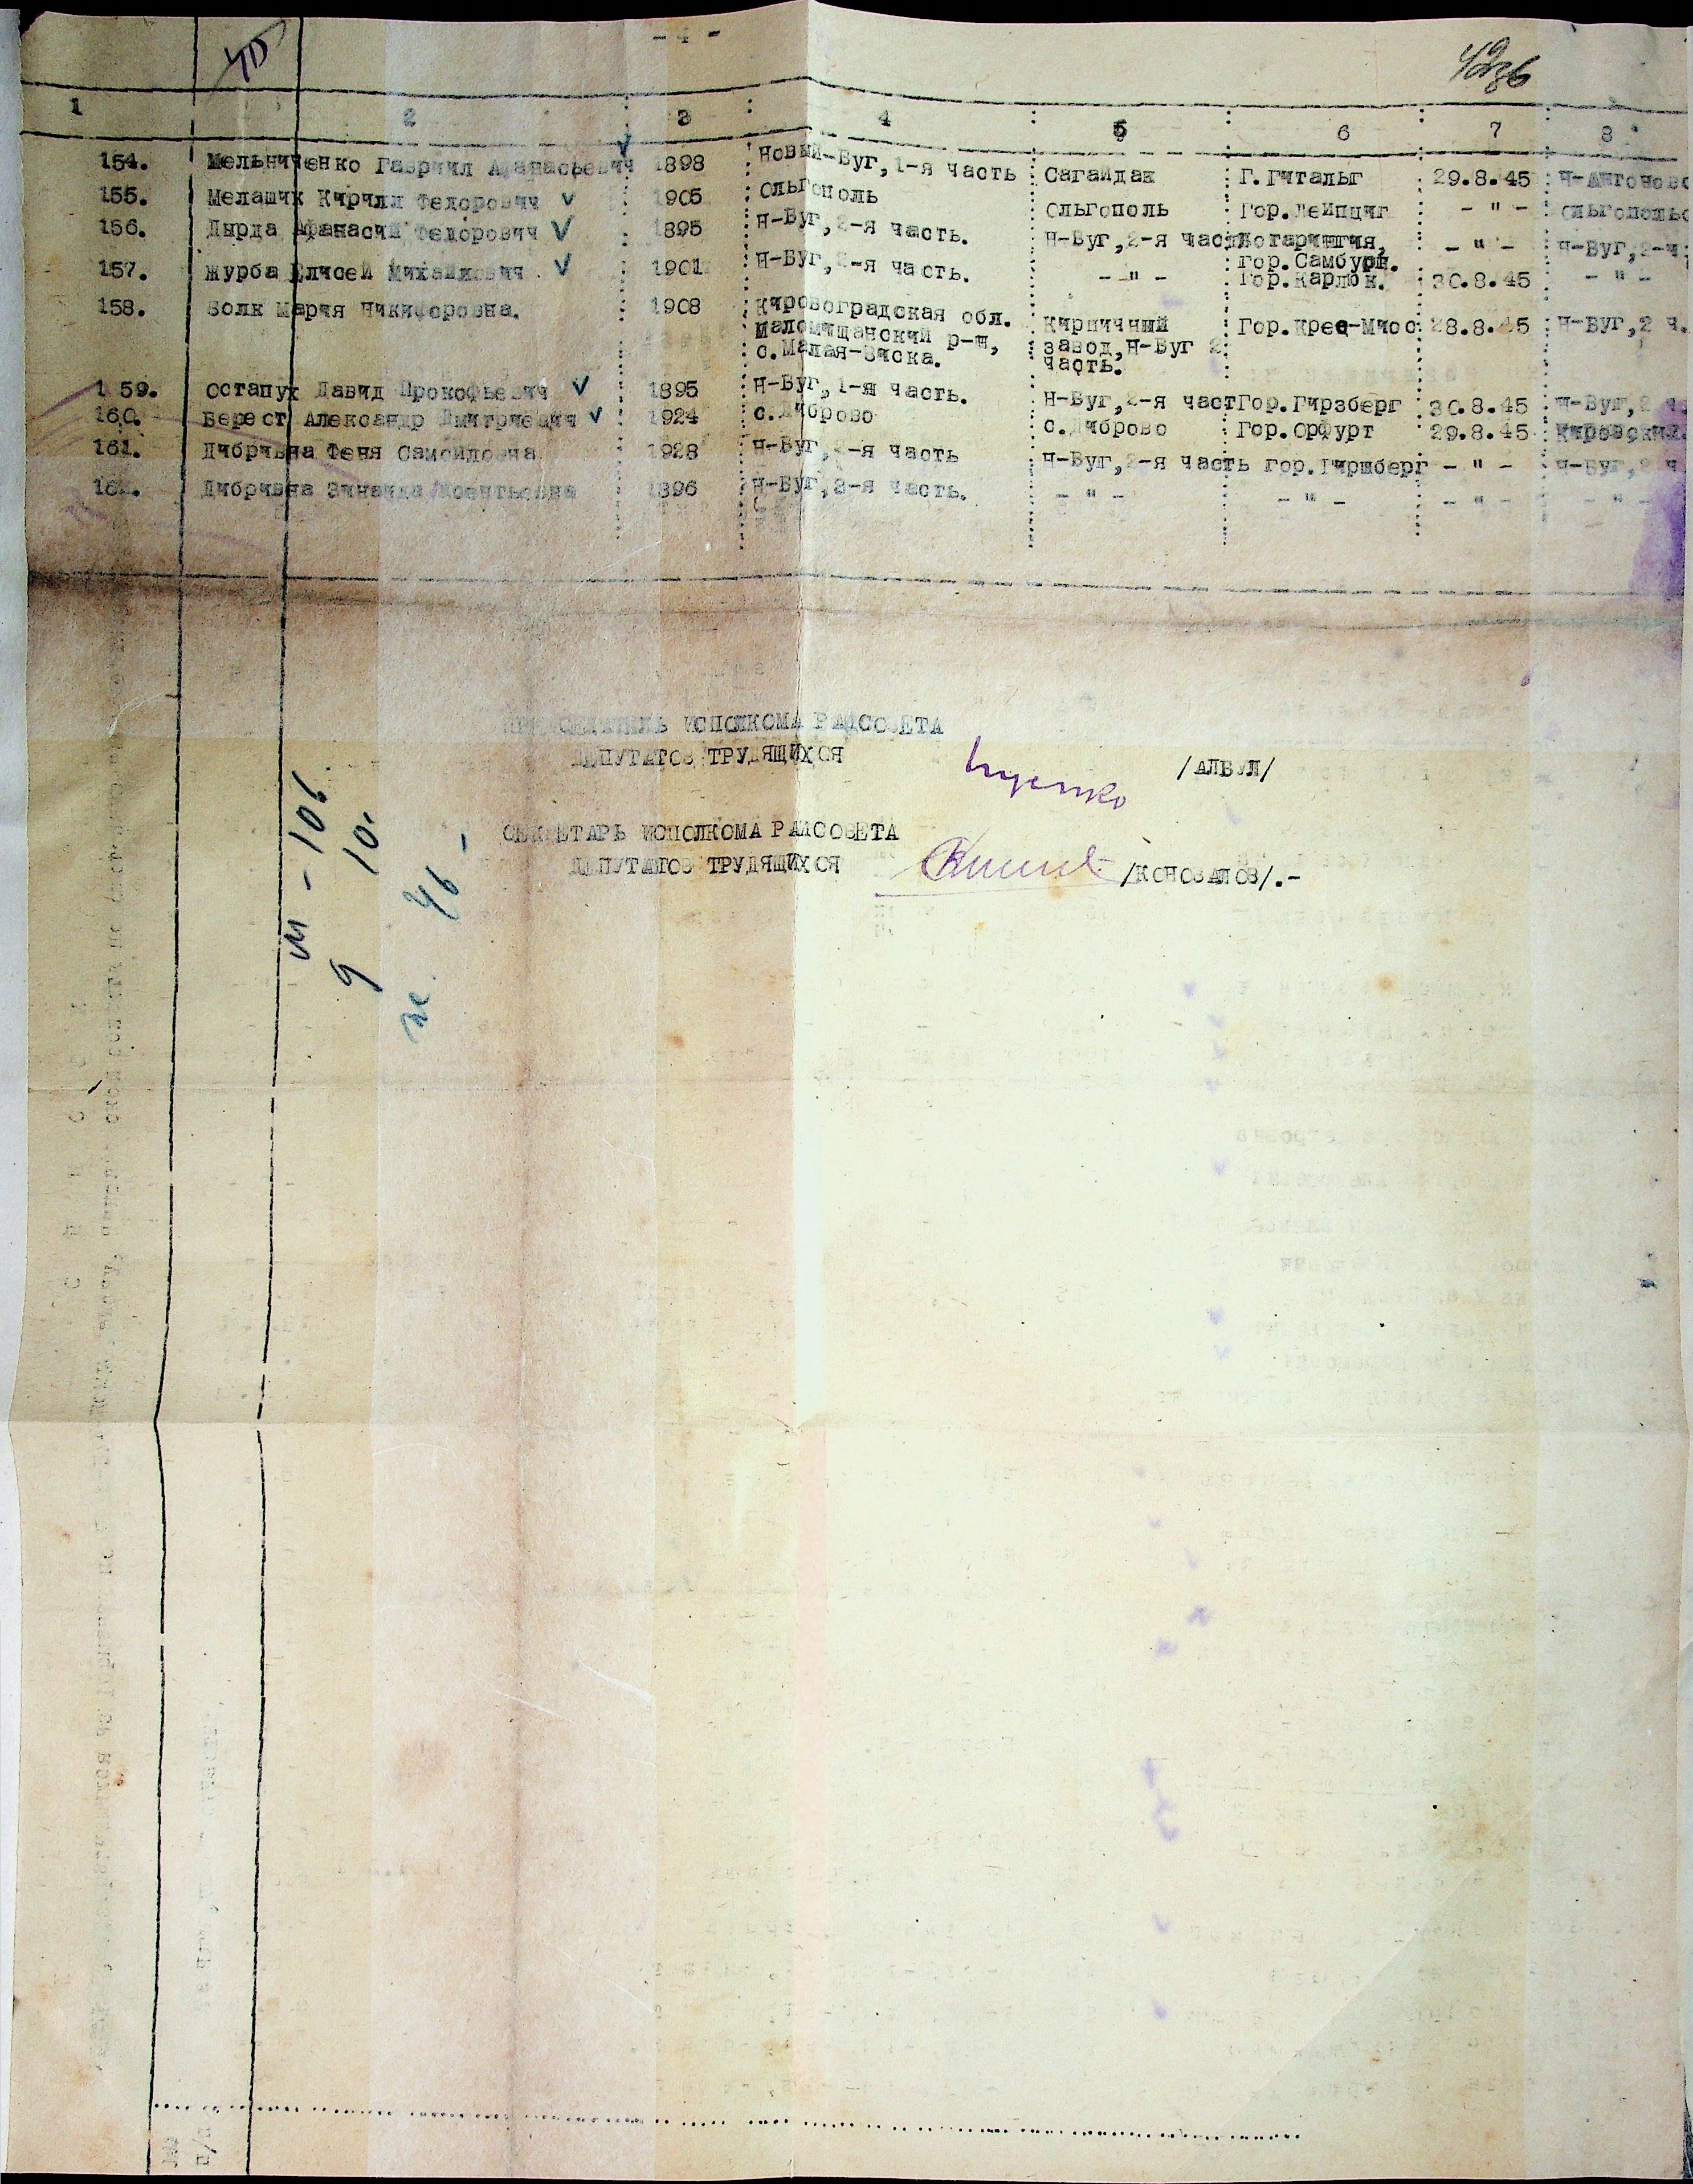 - 4 -
1 2 3 4 5 6 7 8
154. Мельниченко Гаврил Афанасьевич 1898 Новый-Буг, 1-я часть Сагайдак Г. Гитальг 29.8.45 Н-Антоново
155. Мелашик Кирилл Федорович 1905 Ольгополь Ольгополь Гор. Лейпциг - " - Ольгополь
156. Дырда Афанасий Федорович 1895 Н-Буг, 2-я часть. Н-Буг, 2-я часть Лотарингия, - " - Н-Буг, 2-ч
гор. Самбург.
157. Журба Елисей Михайлович 1901 Н-Буг, 2-я часть. - " - Гор. Карлок. 30.8.45 - " -
158. Волк Мария Никифоровна. 1908 Кировоградская обл. Кирпичний Гор. Крес-Миос 28.8.45 Н-Буг, 2 ч.
Маловищанский р-н, завод, Н-Буг 2
с. Малая-Виска. часть.
159. Остапух Давид Прокофьевич 1895 Н-Буг, 1-я часть. Н-Буг, 2-я част Гор. Гирзберг 30.8.45 Н-Буг, 2 ч.
160. Берест Александр Дмитриевич 1924 с. Диброво с. Диброво Гор. Орфурт 29.8.45 Кировский
161. Дибривна Феня Самойловна 1928 Н-Буг, 2-я часть Н-Буг, 2-я часть гор. Гиршберг - " - Н-Буг, 2 ч
162. Дибривна Зинаида 1896 Н-Буг, 3-я часть. - " - - " - - " - - " -
ПРЕДСЕДАТЕЛЬ ИСПОЛКОМА РАЙСОВЕТА
ДЕПУТАТОВ ТРУДЯЩИХСЯ /АЛБУЛ/
СЕКРЕТАРЬ ИСПОЛКОМА РАЙСОВЕТА
ДЕПУТАТОВ ТРУДЯЩИХСЯ /КОНОВАЛОВ/.-
м - 106
9 10.
ж. 46 -